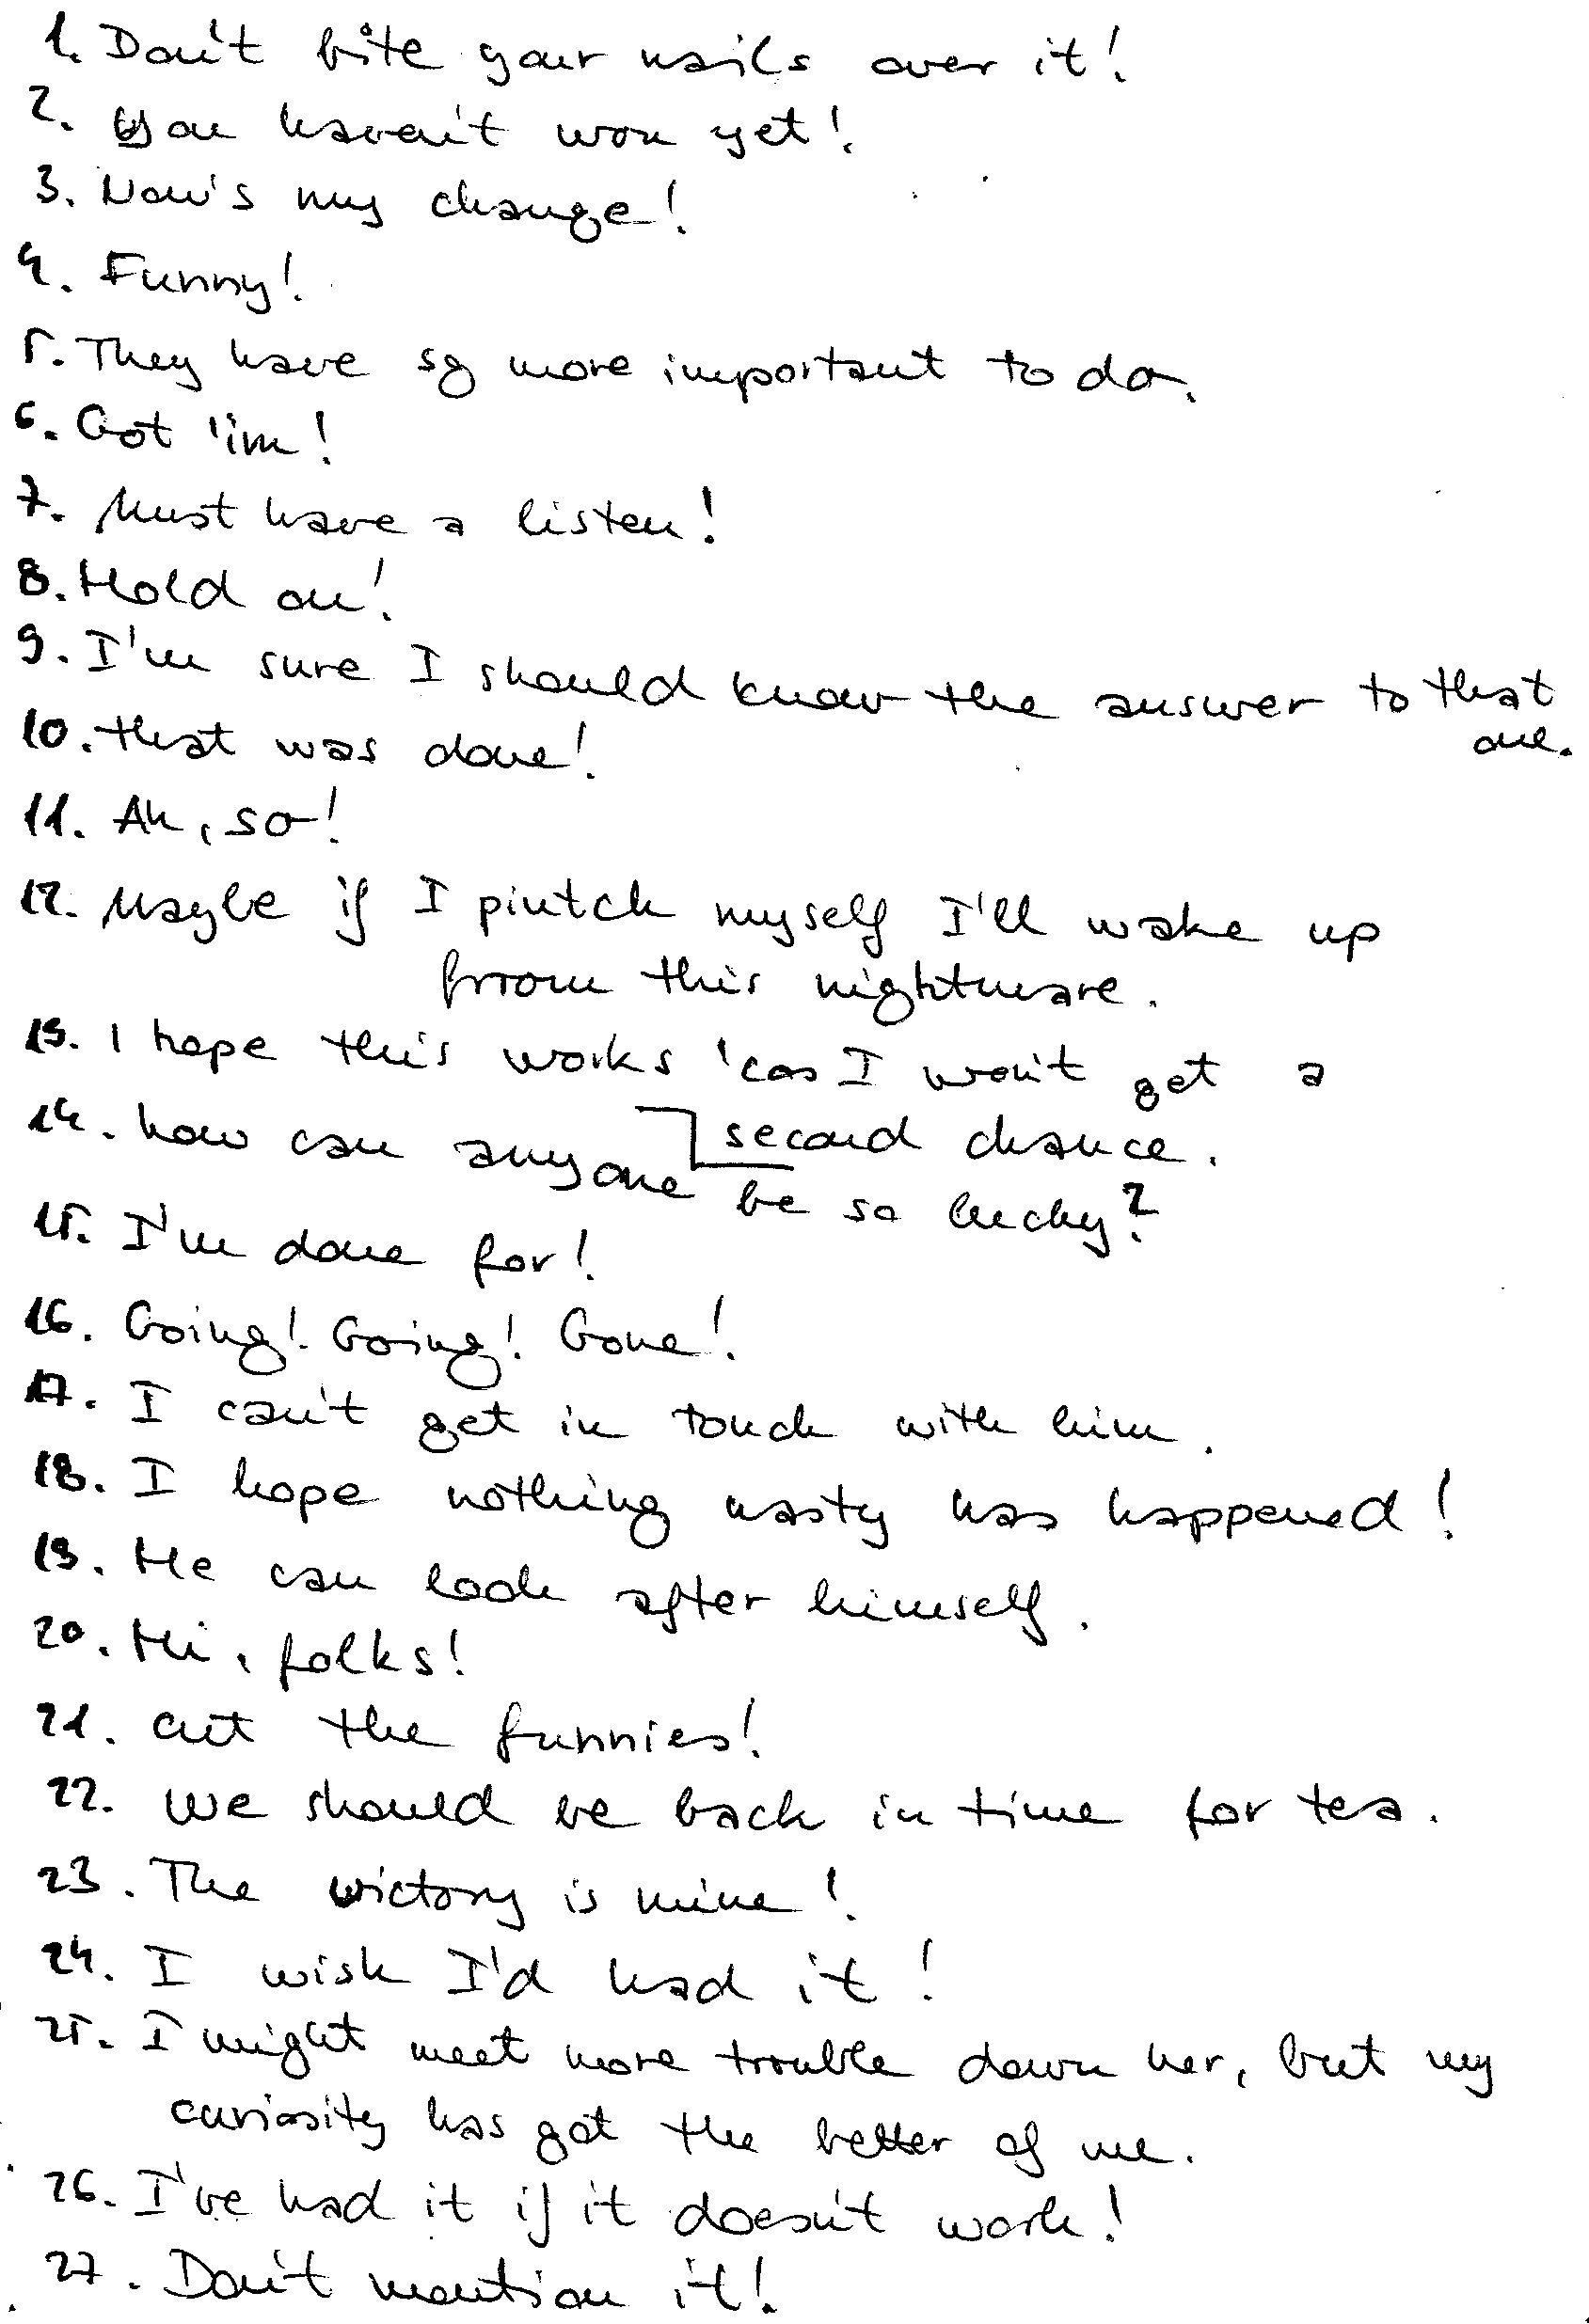 1. Don't bite your nails over it!
2. You haven't won yet!
3. Now's my change!
4. Funny!
5. They have sg more important to do.
6. Got 'im!
7. Must have a listen!
8. Hold on!
9. I'm sure I should know the answer to that
one.
10. that was done!
11. Ah, so!
12. Maybe if I pintch myself I'll wake up
from this nightmare.
13. I hope this works 'cos I won't get a
second chance.
14. how can anyone be so lucky?
15. I'm done for!
16. Going! Going! Gone!
17. I can't get in touch with him.
18. I hope nothing nasty has happened!
19. He can look after himself.
20. Hi, folks!
21. cut the funnies!
22. We should be back in time for tea.
23. The victory is mine!
24. I wish I'd had it!
25. I might meet more trouble down her, but my
curiosity has got the better of me.
26. I've had it if it doesn't work!
27. Don't mention it!